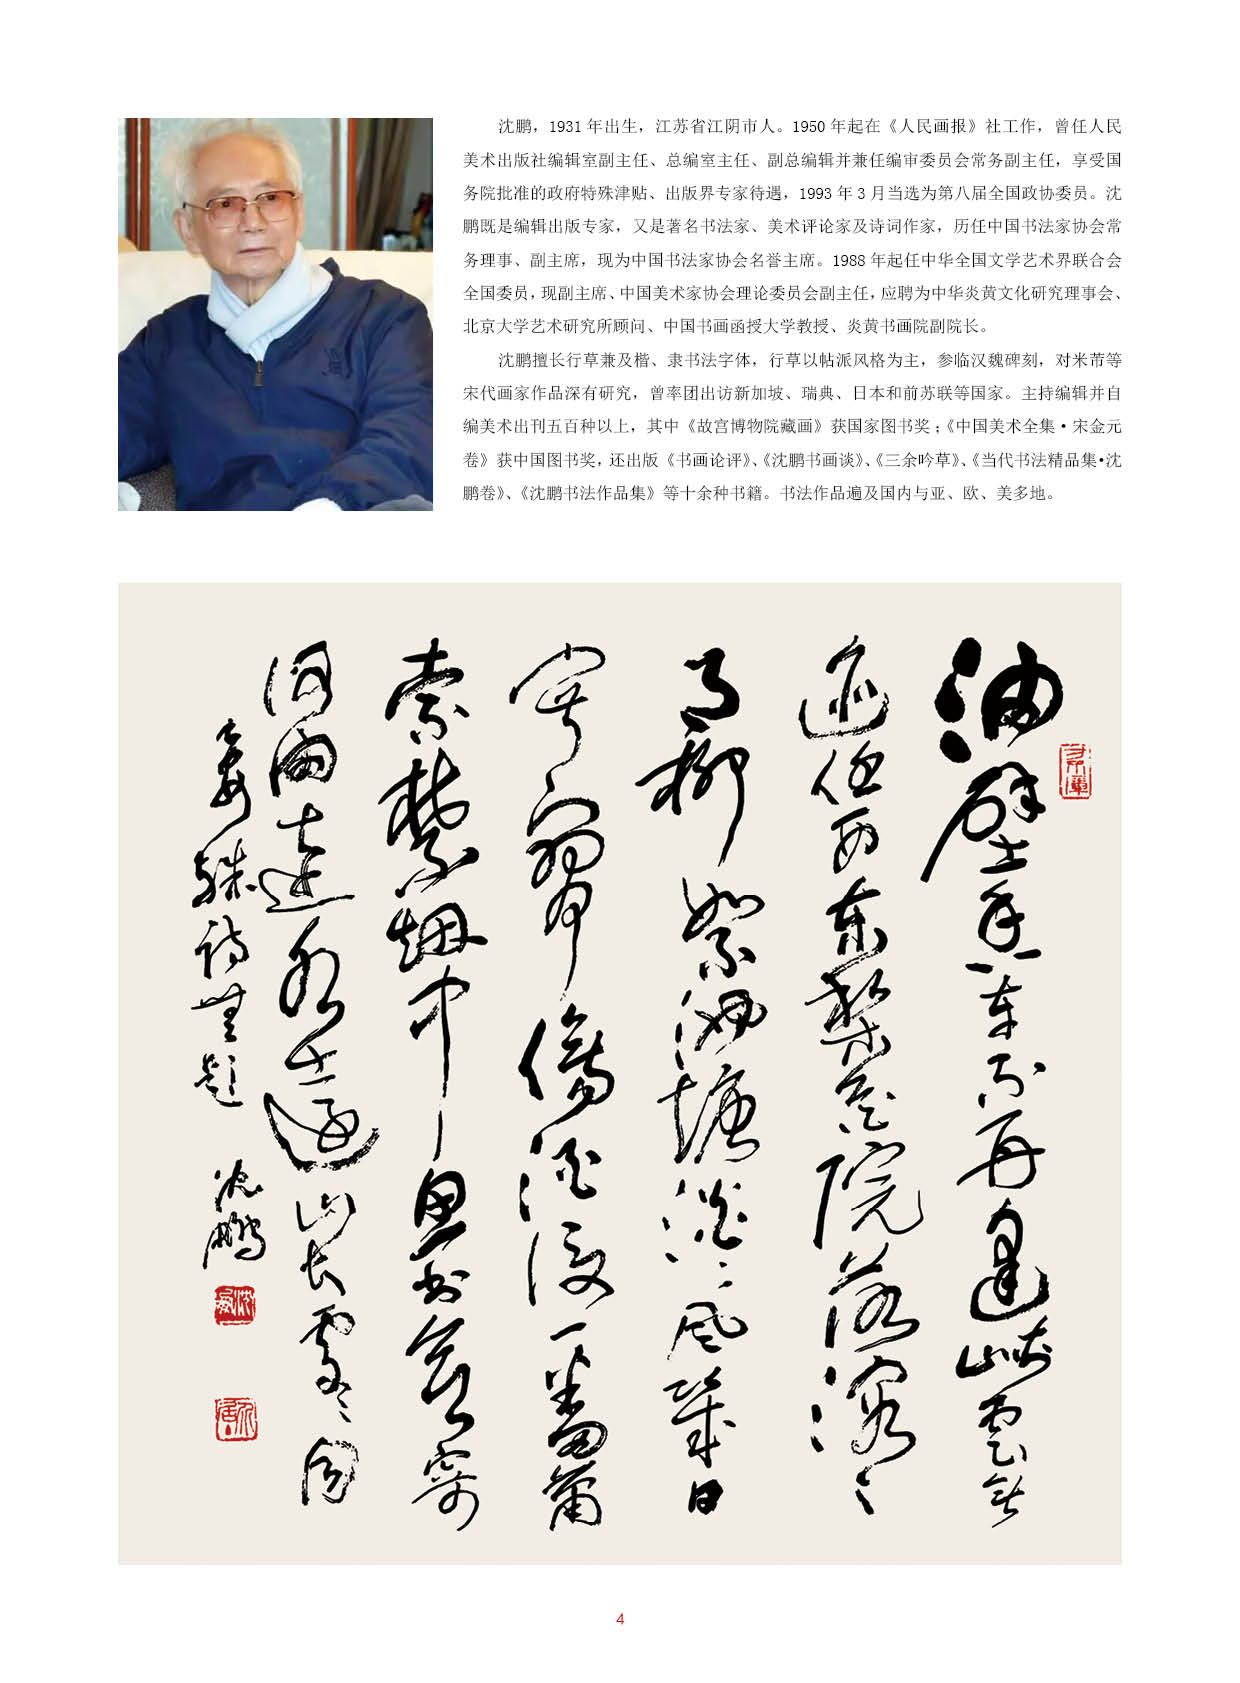 沈鹏，1931 年出生，江苏省江阴市人。1950 年起在《人民画报》社工作，曾任人民
美术出版社编辑室副主任、总编室主任、副总编辑并兼任编审委员会常务副主任，享受国
务院批准的政府特殊津贴、出版界专家待遇，1993 年 3 月当选为第八届全国政协委员。沈
鹏既是编辑出版专家，又是著名书法家、美术评论家及诗词作家，历任中国书法家协会常
务理事、副主席，现为中国书法家协会名誉主席。1988 年起任中华全国文学艺术界联合会
全国委员，现副主席、中国美术家协会理论委员会副主任，应聘为中华炎黄文化研究理事会、
北京大学艺术研究所顾问、中国书画函授大学教授、炎黄书画院副院长。
沈鹏擅长行草兼及楷、隶书法字体，行草以帖派风格为主，参临汉魏碑刻，对米芾等
宋代画家作品深有研究，曾率团出访新加坡、瑞典、日本和前苏联等国家。主持编辑并自
编美术出刊五百种以上，其中《故宫博物院藏画》获国家图书奖；《中国美术全集·宋金元
卷》获中国图书奖，还出版《书画论评》、《沈鹏书画谈》、《三余吟草》、《当代书法精品集·沈
鹏卷》、《沈鹏书法作品集》等十余种书籍。书法作品遍及国内与亚、欧、美多地。
油壁香车不再逢峡云无
迹任西东梨花院落溶〻
月柳絮池塘淡〻风几日
寂寥伤酒后一番萧
索禁烟中鱼书欲寄
何由达水远山长处〻同
晏殊诗无题 沈鹏
4